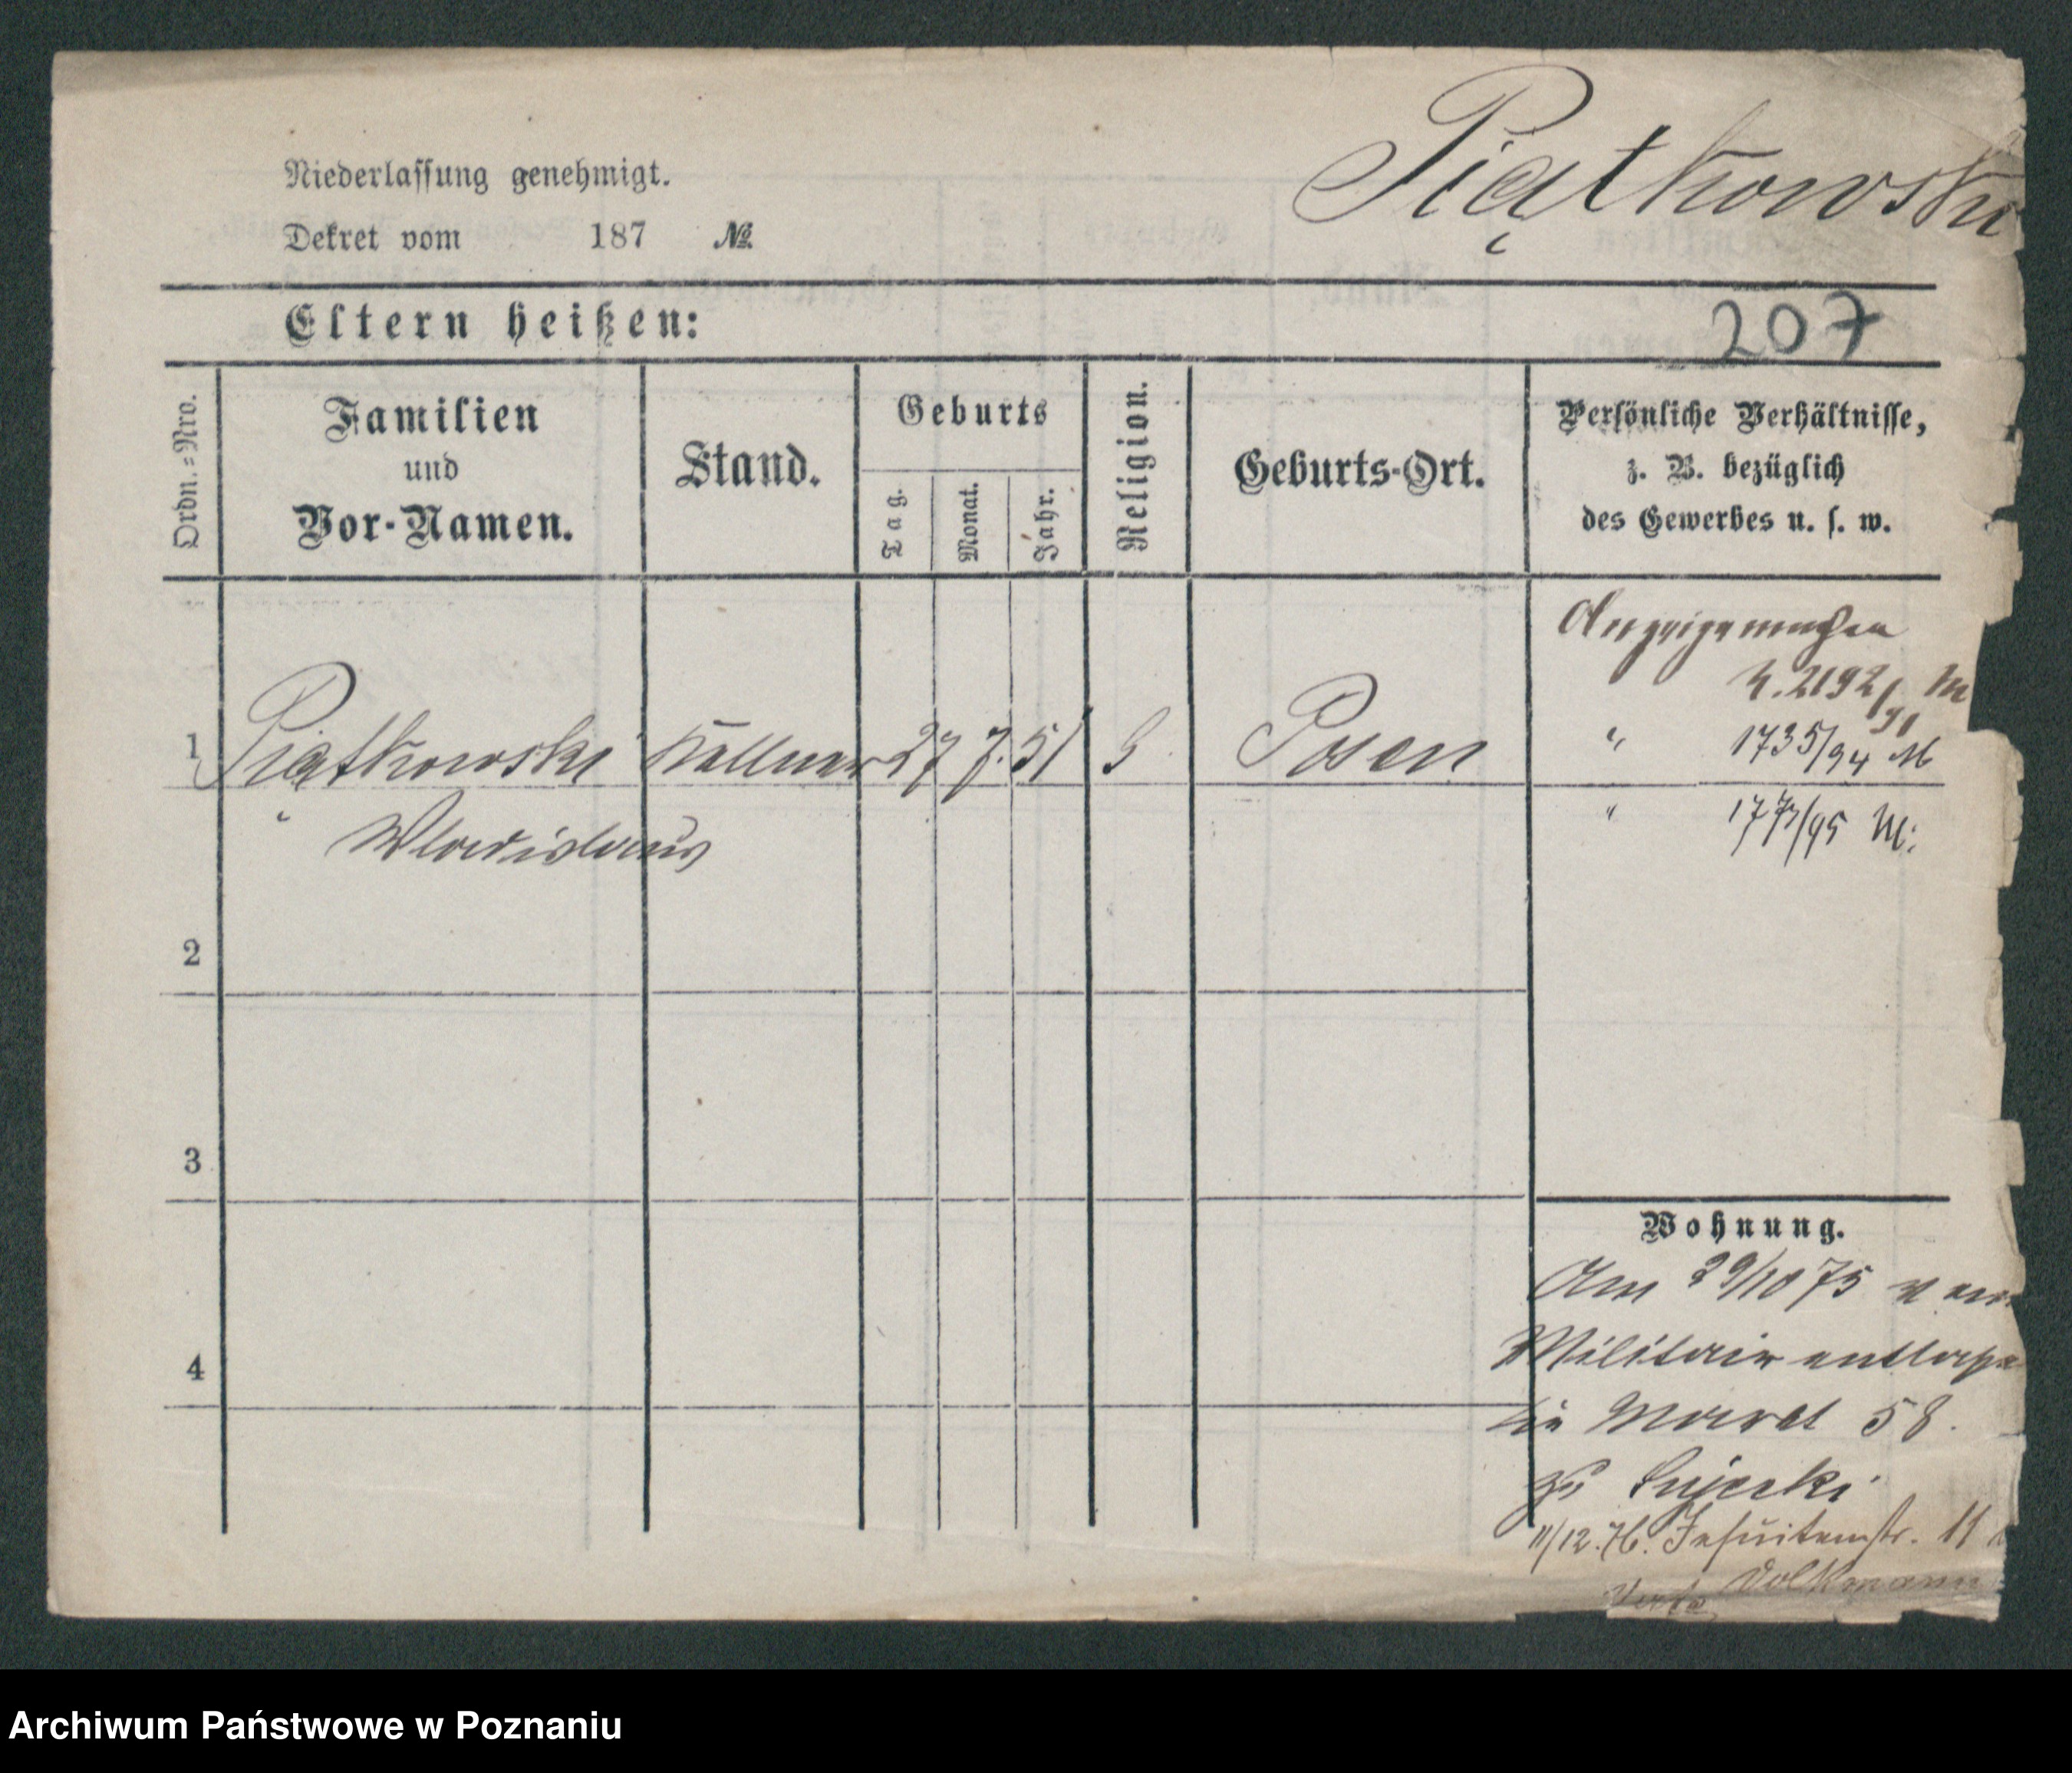 Piątkowski
Niederlassung genehmigt.
Dekret vom 187 №
Eltern heißen:
207
Ordn.=Nro.
Familien
und
Vor-Namen.
Stand.
Geburts
Tag.
Monat.
Jahr.
Religion.
Geburts-Ort.
Persönliche Verhältnisse,
z. B. bezüglich
des Gewerbes u. s. w.
Anzeige machen
2192/91 M
1 Piątkowski Kellner 27 7. 51 Posen
" 1735/94 M
Wladislaus
" 95 M.
2
3
4
Wohnung.
Am 29/10 75 vom
Militair entlasse
Markt 58.
11/12. 76. Jesuitenstr. 11
Volkmann
Archiwum Państwowe w Poznaniu